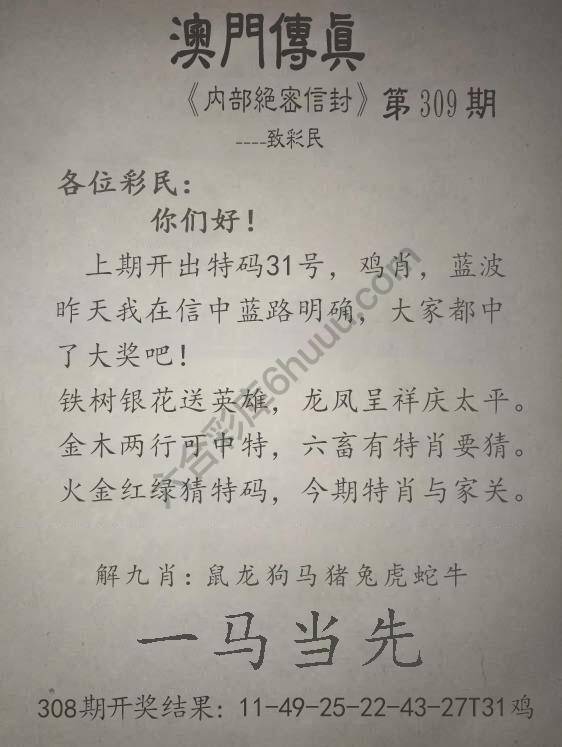 澳門傳眞
《内部絕密信封》第309期
----致彩民
各位彩民：
你们好！
上期开出特码31号，鸡肖，蓝波
昨天我在信中蓝路明确，大家都中
了大奖吧！
铁树银花送英雄，龙凤呈祥庆太平。
金木两行可中特，六畜有特肖要猜。
火金红绿猜特码，今期特肖与家关。
解九肖：鼠龙狗马猪兔虎蛇牛
一马当先
308期开奖结果：11-49-25-22-43-27T31鸡
六合彩库6huuu.com